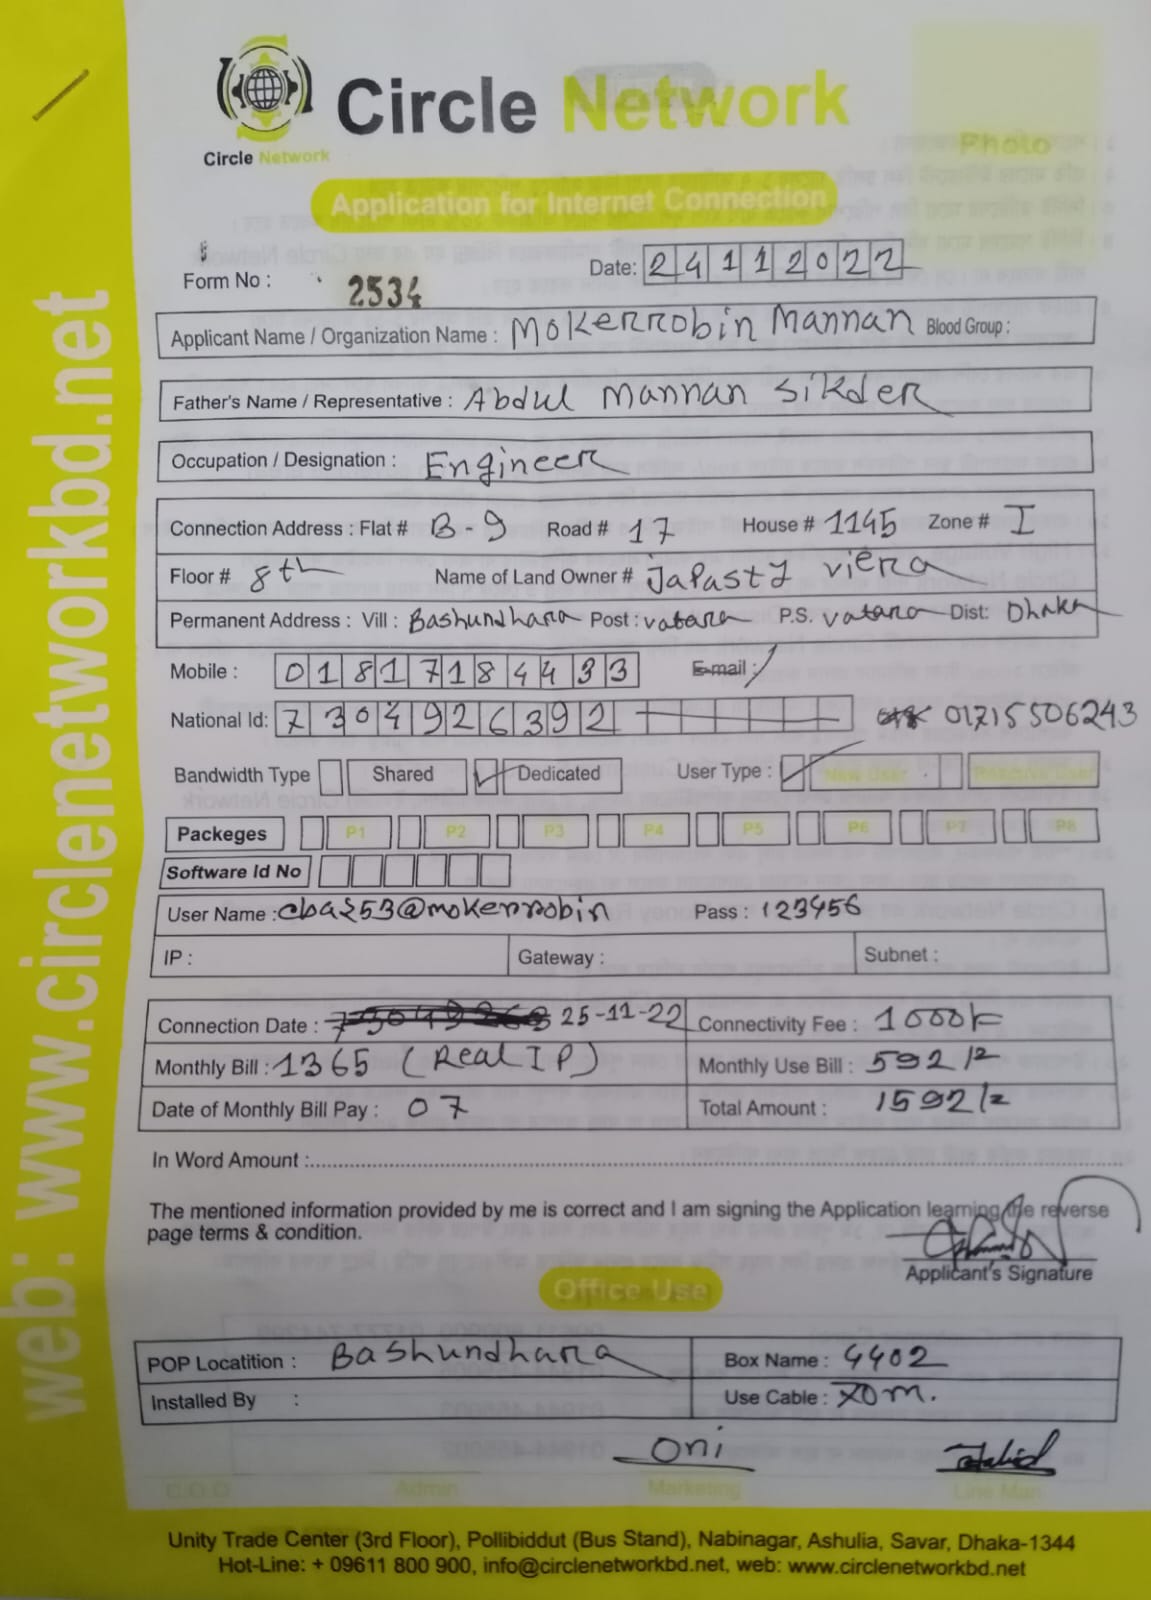 web: www.circlenetworkbd.net
Circle Network
Circle Network
Photo
Application for Internet Connection
Form No : 2534 Date: 24112022
Applicant Name / Organization Name : Mokerrobin Mannan Blood Group :
Father's Name / Representative : Abdul Mannan Sikder
Occupation / Designation : Engineer
Connection Address : Flat # B-9 Road # 17 House # 1145 Zone # I
Floor # 8th Name of Land Owner # Japasty viera
Permanent Address : Vill : Bashundhara Post : vatara P.S. vatara Dist: Dhaka
Mobile : 01817184433 E-mail :
National Id: 7304926392 01715506243
Bandwidth Type Shared Dedicated User Type : New User Reactive User
Packeges P1 P2 P3 P4 P5 P6 P7 P8
Software Id No
User Name : cba253@mokerrobin Pass : 123456
IP : Gateway : Subnet :
Connection Date : 25-11-22 Connectivity Fee : 1000/=
Monthly Bill : 1365 (Real IP) Monthly Use Bill : 592/=
Date of Monthly Bill Pay : 07 Total Amount : 1592/=
In Word Amount :
The mentioned information provided by me is correct and I am signing the Application learning the reverse
page terms & condition.
Applicant's Signature
Office Use
POP Locatition : Bashundhara Box Name : 4402
Installed By : Use Cable : 70m.
Oni
C.O.O Admin Marketing Line Man
Unity Trade Center (3rd Floor), Pollibiddut (Bus Stand), Nabinagar, Ashulia, Savar, Dhaka-1344
Hot-Line: + 09611 800 900, info@circlenetworkbd.net, web: www.circlenetworkbd.net